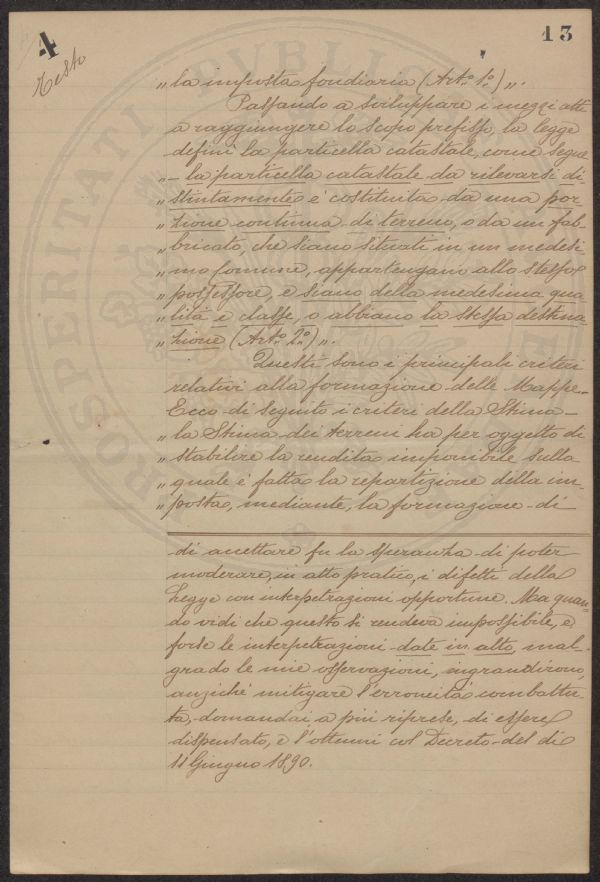 4
13
Testo
„ la imposta fondiaria (Art.º 1º) „.
Passando a sviluppare i mezzi atti
a raggiungere lo scopo prefisso, la legge
definì la particella catastale, come segue
„ – la particella catastale da rilevarsi di-
„ stintamente è costituita da una por-
„ zione continua di terreno, o da un fab-
„ bricato, che siano situati in un medesi
„ mo Comune, appartengano allo stesso
„ possessore, e siano della medesima qua
„ lità e classe, o abbiano la stessa destina
„ zione (Art.º 2º) „.
Questi sono i principali criteri
relativi alla formazione delle Mappe.
Ecco di seguito i criteri della Stima –
„ la Stima dei terreni ha per oggetto di
„ stabilire la rendita imponibile sulla
„ quale è fatta la repartizione della im-
„ posta, mediante, la formazione di
di accettare fu la speranza di poter
moderare, in atto pratico, i difetti della
Legge con interpetrazioni opportune. Ma quan-
do vidi che questo si rendeva impossibile, e
forse le interpetrazioni date in alto, mal-
grado le mie osservazioni, ingrandirono,
anziché mitigare l'erroneità combattu-
ta, domandai a più riprese, di essere
dispensato, e l'ottenni col Decreto del dì
11 Giugno 1890.
PROSPERITATI PVBLICAE